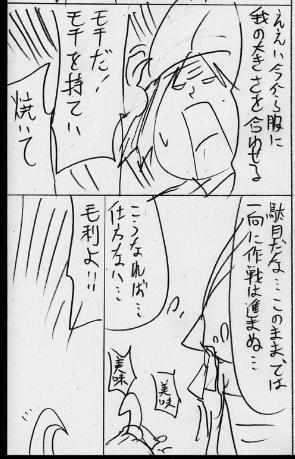 ええい今から服に
我の大きさを合わせる
モチだ!
モチを持てい
焼いて
駄目だな…このままでは
一向に作戦は進まぬ…
こうなれば…
仕方ない…
美味
美味
毛利よ!!